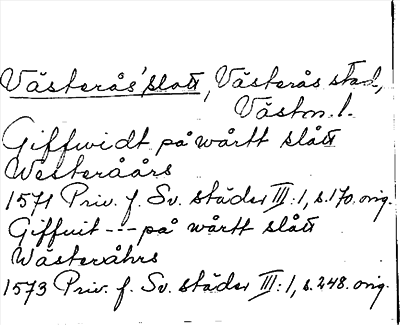 Västerås slott, Västerås stad,
Västm. l.
Giffwidt på wårtt slått
Westeråårs
1571 Priv. f. Sv. städer III:1, s.170. orig.
Giffuit --- på wårtt slått
Wästeråhrs
1573 Priv. f. Sv. städer III:1, s.248. orig.